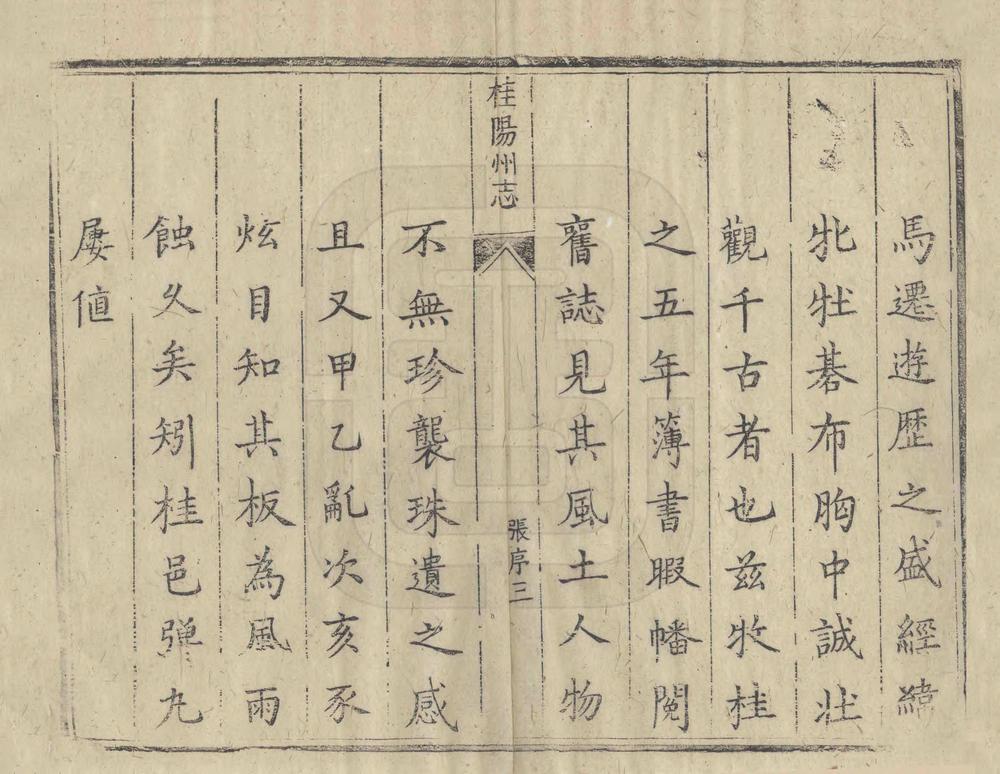 馬遷遊歷之盛經緯
牝牡碁布胸中誠壯
觀千古者也兹牧桂
之五年簿書暇幡閱
舊誌見其風土人物
桂陽州志
張序三
不無珍襲珠遺之感
且又甲乙亂次亥豕
炫目知其板為風雨
蝕久矣矧桂邑弹丸
屢值